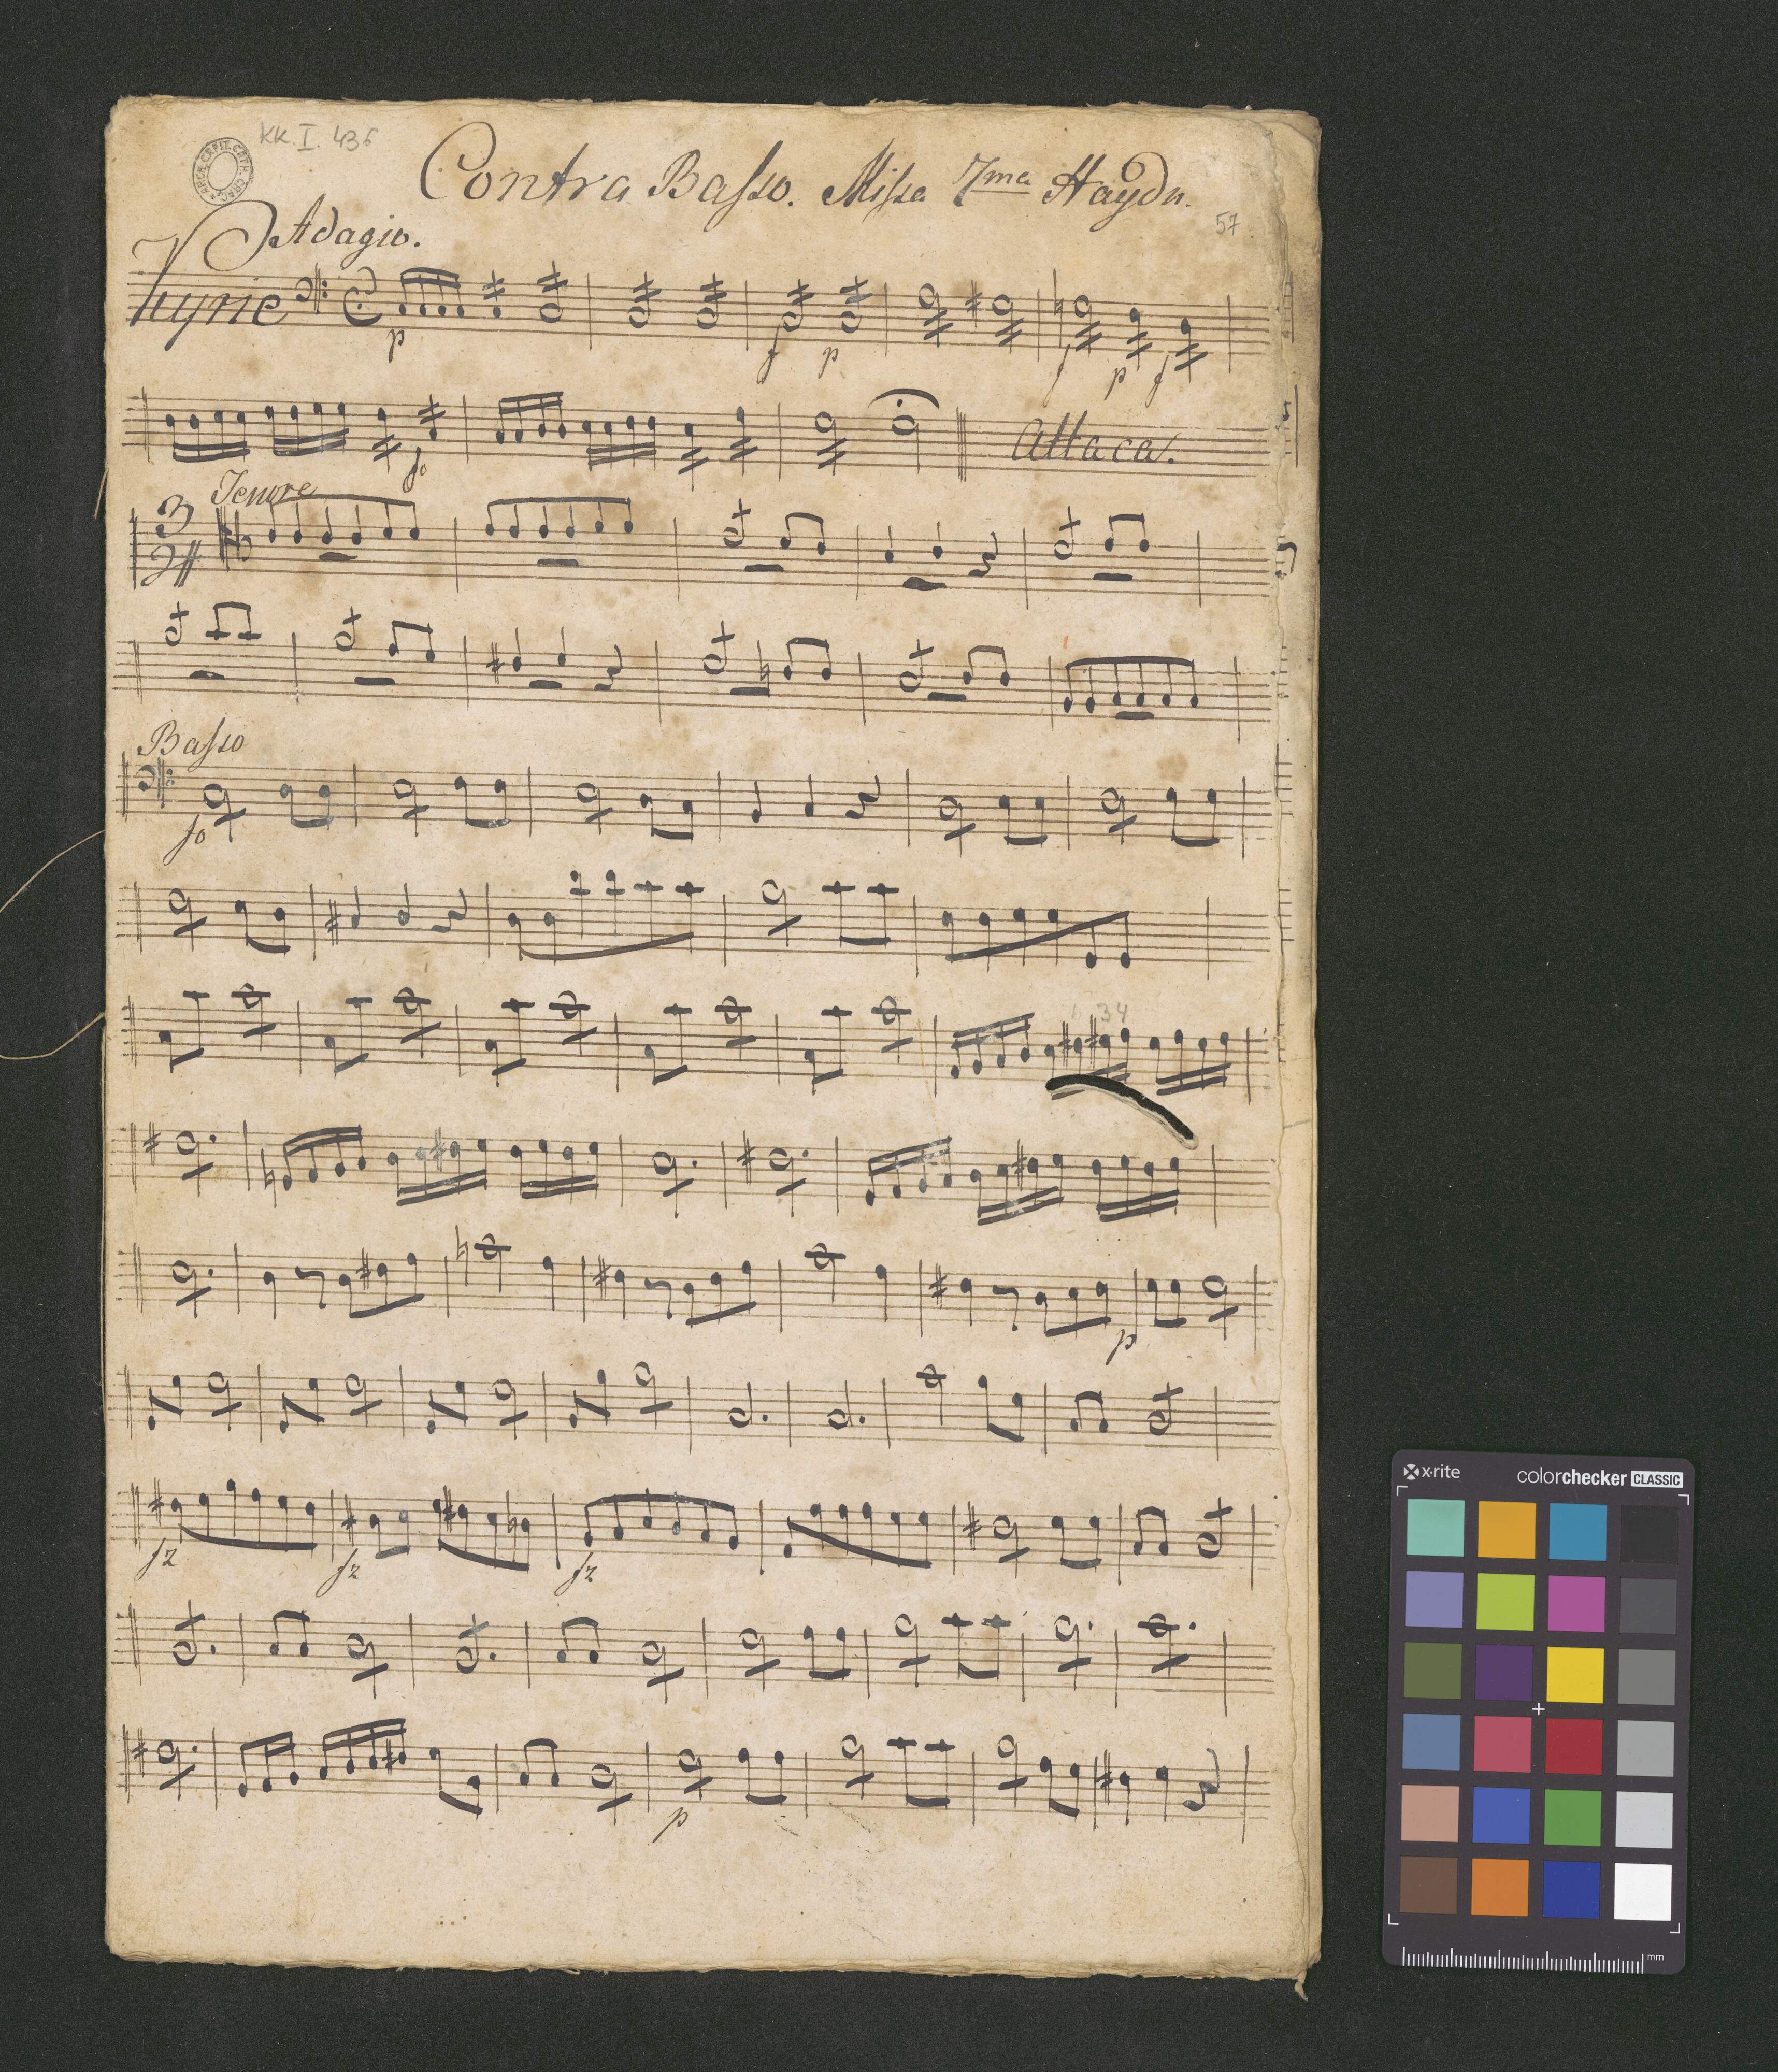 KK. I. 436
Contra Basso. Missa 7ma Haydn.
57
Adagio.
Kyrie
p f p f p f
fo
Attaca.
Tenore
3
Basso
fo
1 34
p
fz fz fz
p
x-rite colorchecker CLASSIC
mm